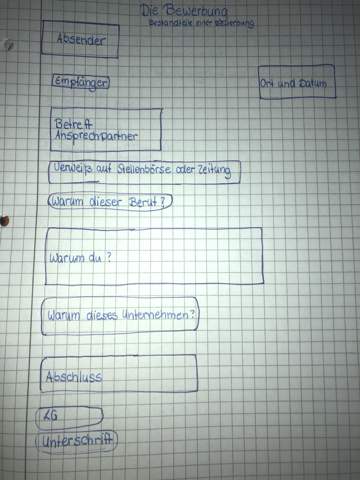 Die Bewerbung
Bestandteile einer Bewerbung
Absender
Empfänger
Ort und Datum
Betreff
Ansprechpartner
Verweiß auf Stellenbörse oder Zeitung
Warum dieser Beruf?
Warum du?
Warum dieses Unternehmen?
Abschluss
LG
Unterschrift